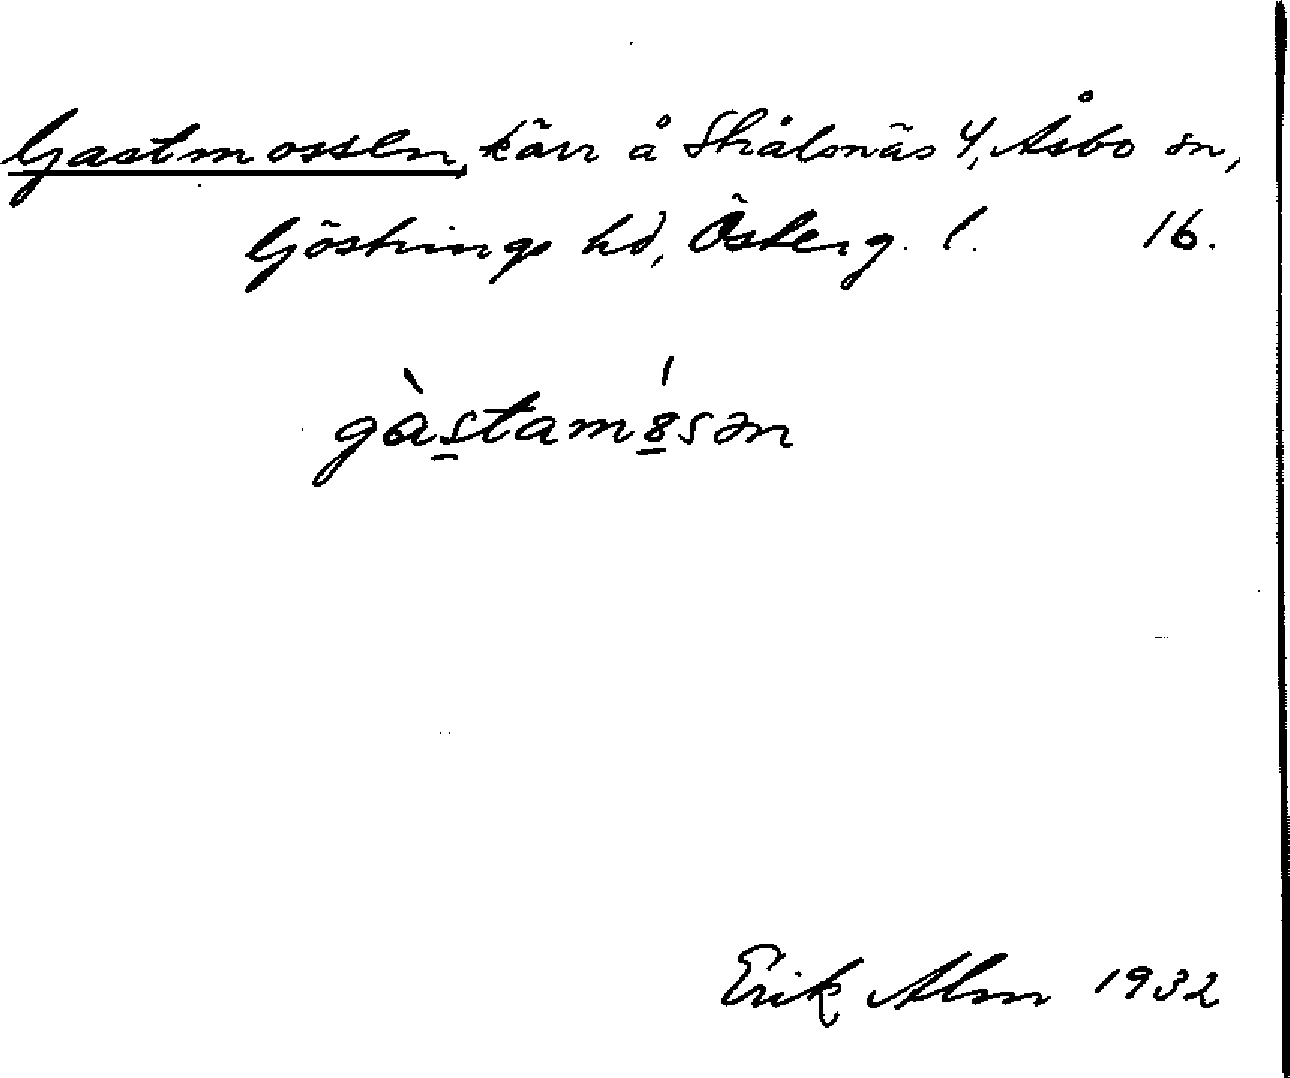 Gastmossen, kärr å Skålsnäs 4, Åsbo sn,
Göstrings hd, Österg. l. 16.
gàstamósən
Erik Alm 1932